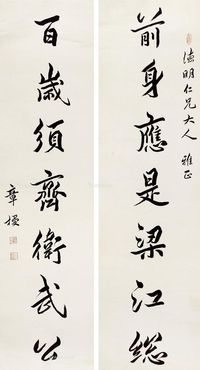 德明仁兄大人 雅正
前身應是梁江総
百歲須齊衛武公
章梫